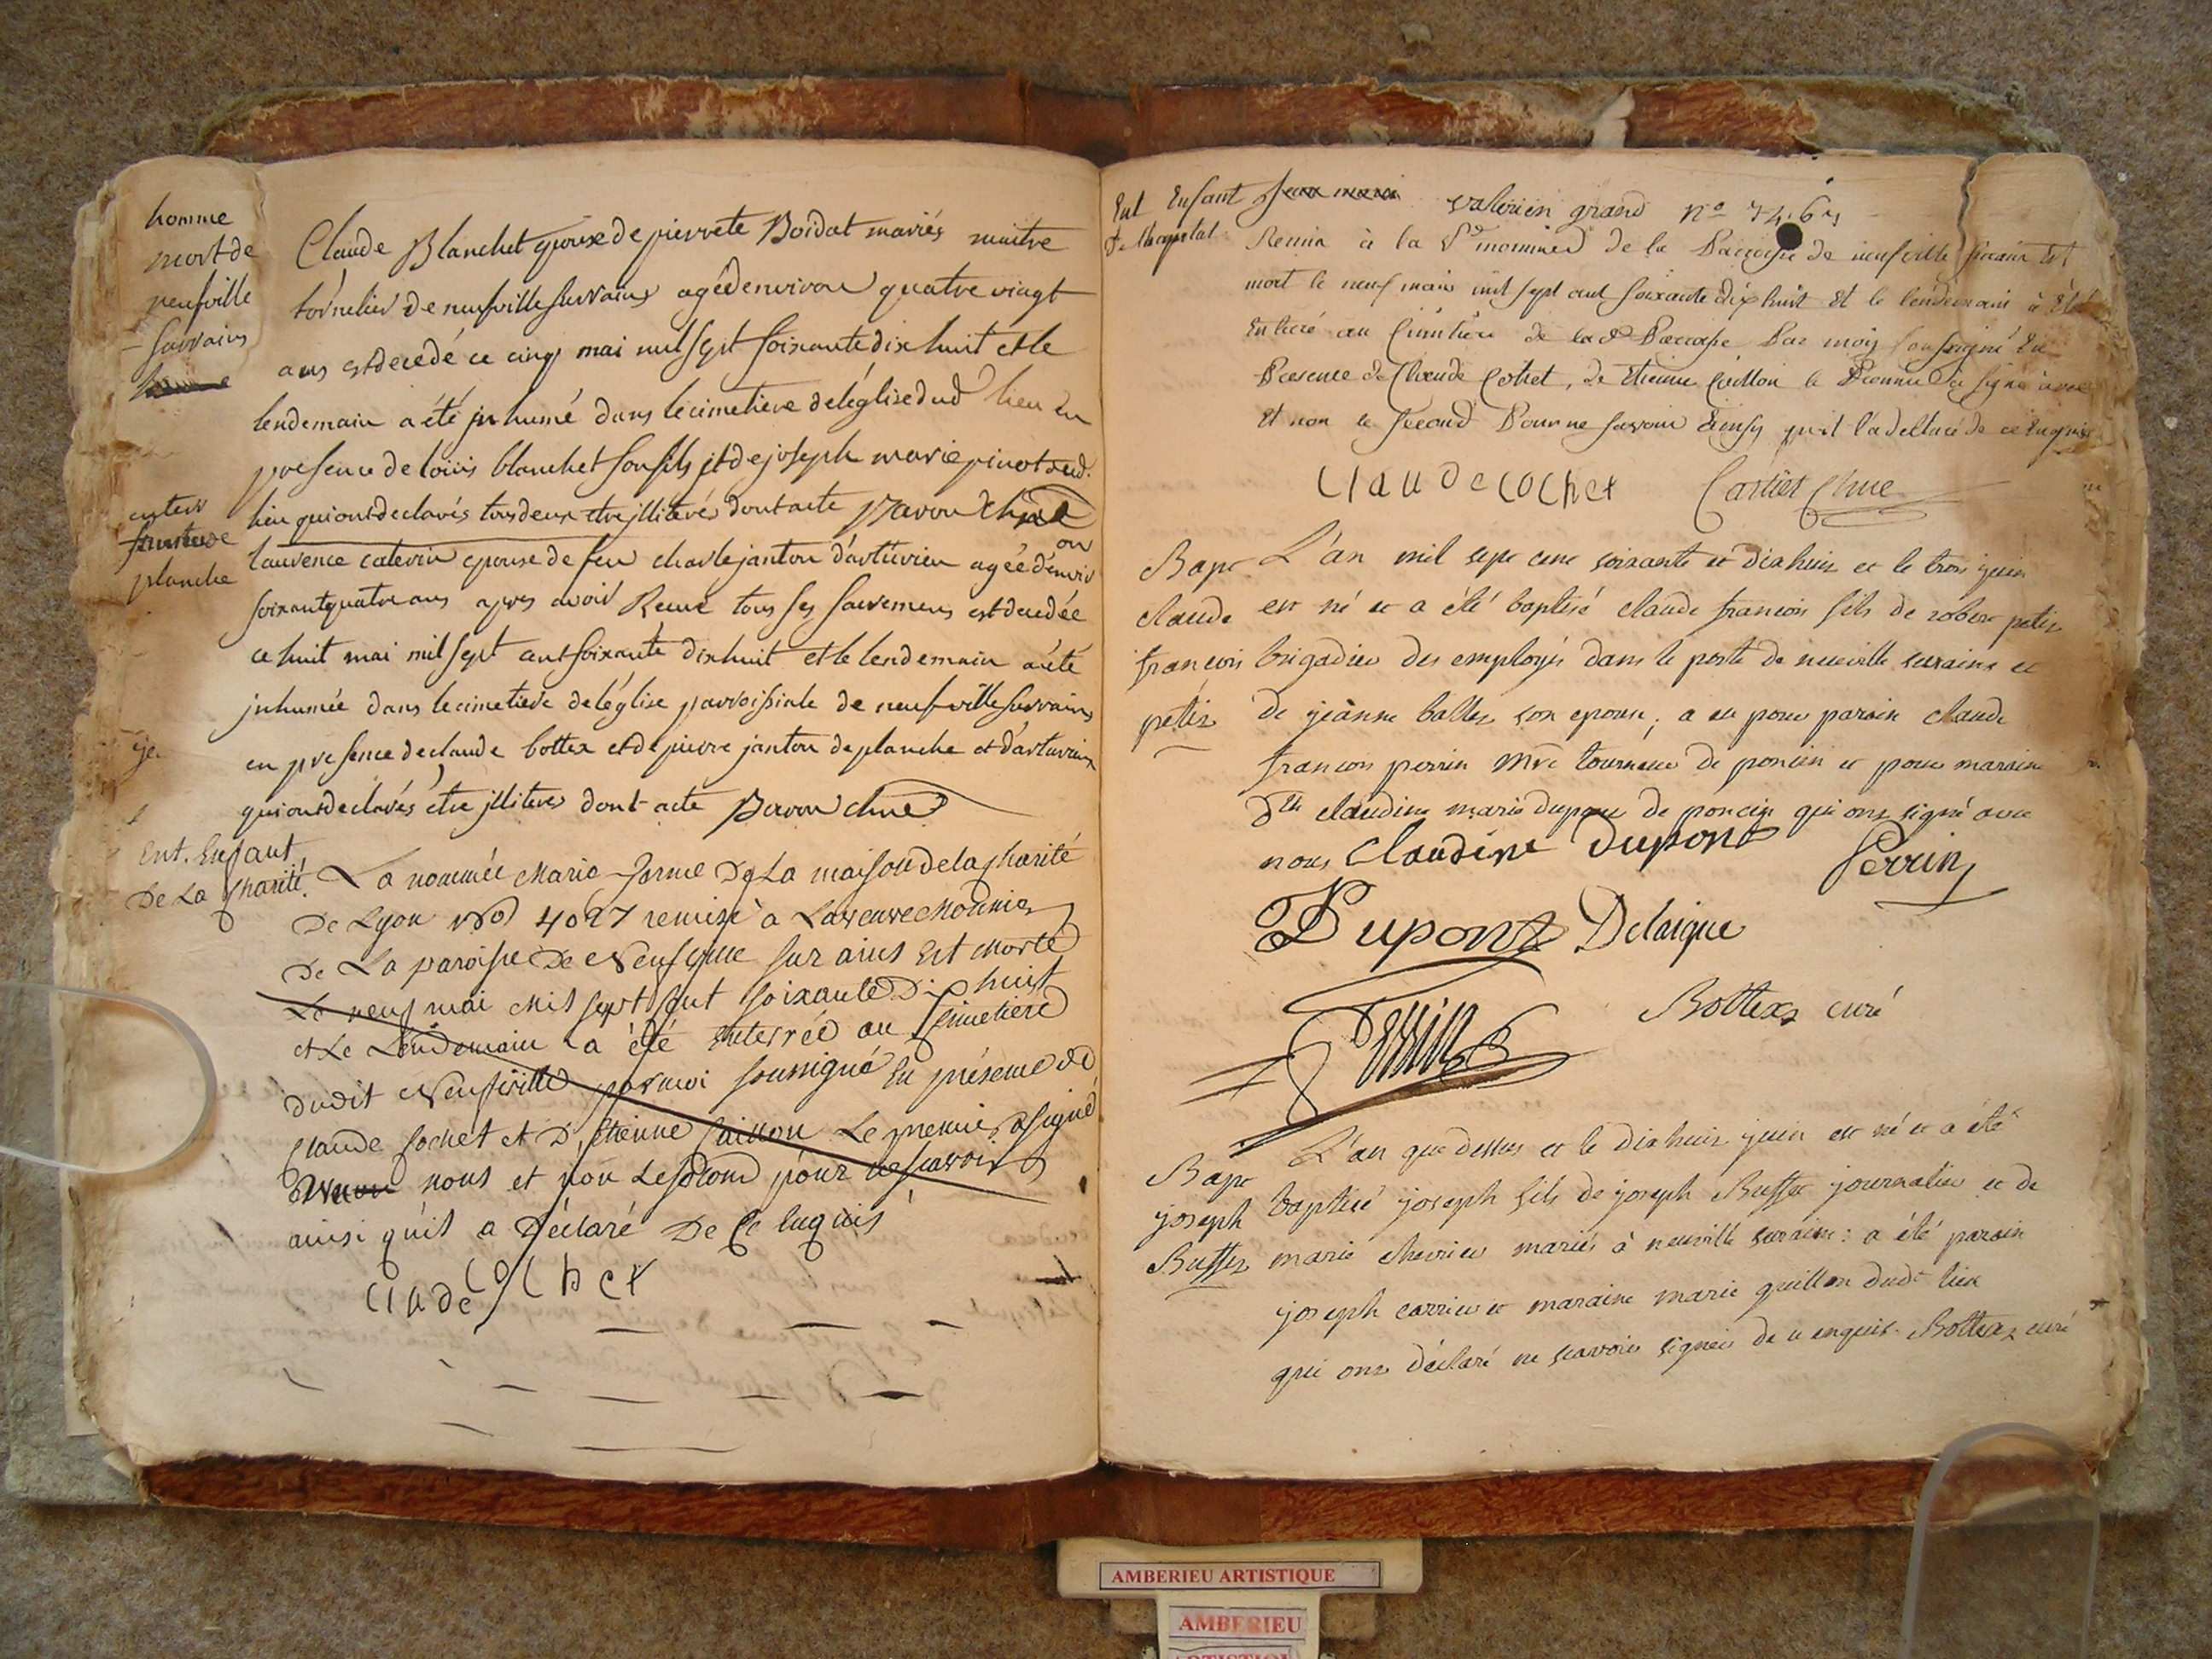 homme
mort de
neufville
survains
Claude Blanchet epoux de pierrete Boidat mariés maitre
tornelier de neufville survains agé denviron quatre vingt
ans est decedé ce cinq mai mil sept soixante dix huit et le
lendemain a été jnhumé dans le cimetiere de l'église dud lieu en
presence de loüis blanchet son fils et de joseph marie pinot dud.
lieu qui ont declarés tous deux etre jlliterés dont acte
planche
laurence caterin epouse de feu charle janton d'arturieu agée d'environ
soixant quatre ans apres avoir Recue tous ses sacremens est decedée
ce huit mai mil sept cent soixante dix huit et le lendemain a été
jnhumée dans le cimetiere de léglise parroissiale de neufville survains
en presence de claude bottex et de pierre janton de planche et d'arturieu
qui ont declarés etre jlliterés dont acte
Ent. Enfant
De La Charité.
La nommée Marie Jorme De La maison de la Charité
De Lyon No 4027 remise à La veuve Mounier
De La paroisse De Neufville sur ains Est Morte
Le neuf mai Mil sept Cent soixante Dix huit
et Le Lendemain a été Enterrée au Cimetiere
dudit Neufville par moi soussigné En présence De
Claude Cochet et D'Etienne Caillon Le premier a signé
nous et non Le second pour ne scavoir
ainsi qu'il a Déclaré De Ce Enquis
Claude Cochet
Ent Enfant
valerien grand no
Remis à la de la Parroisse de neufville sur ain Est
mort le neuf mai mil sept cent soixante dix huit Et le lendemain à Été
Enterré au Cimitière de lad Parroisse Par moy soussigné En
Presence de Claude Cochet, de Etienne Caillon le Premier a signé avec
Et non le second Pour ne savoir Einsy qu'il l'a declaré de ce Enquis
Claude cochet Cartier
Bapt
claude
francois
petit
L'an mil sept cent soixante et dix huit et le trois juin
est né et a été baptisé claude francois fils de robert petit
brigadier des employés dans le poste de neuville surains et
de jeanne balley son epouse; a eu pour parain claude
francois perrin Mre tourneur de poncin et pour maraine
dlle claudine marie dupont de poncin qui ont signé avec
nous Claudine Dupont Perrin
Dupont Delaigue
Perrin
Bottex curé
Bapt
joseph
Buffet
L'an que dessus et le dix huit juin est né et a été
baptisé joseph fils de joseph Buffet journalier et de
marie chevrier mariés à neuville surains: a été parain
joseph carrier et maraine marie guillon dudt lieu
qui ont déclaré ne scavoir signer de ce enquis. Bottex curé
AMBERIEU ARTISTIQUE
AMBERIEU
ARTISTIQUE